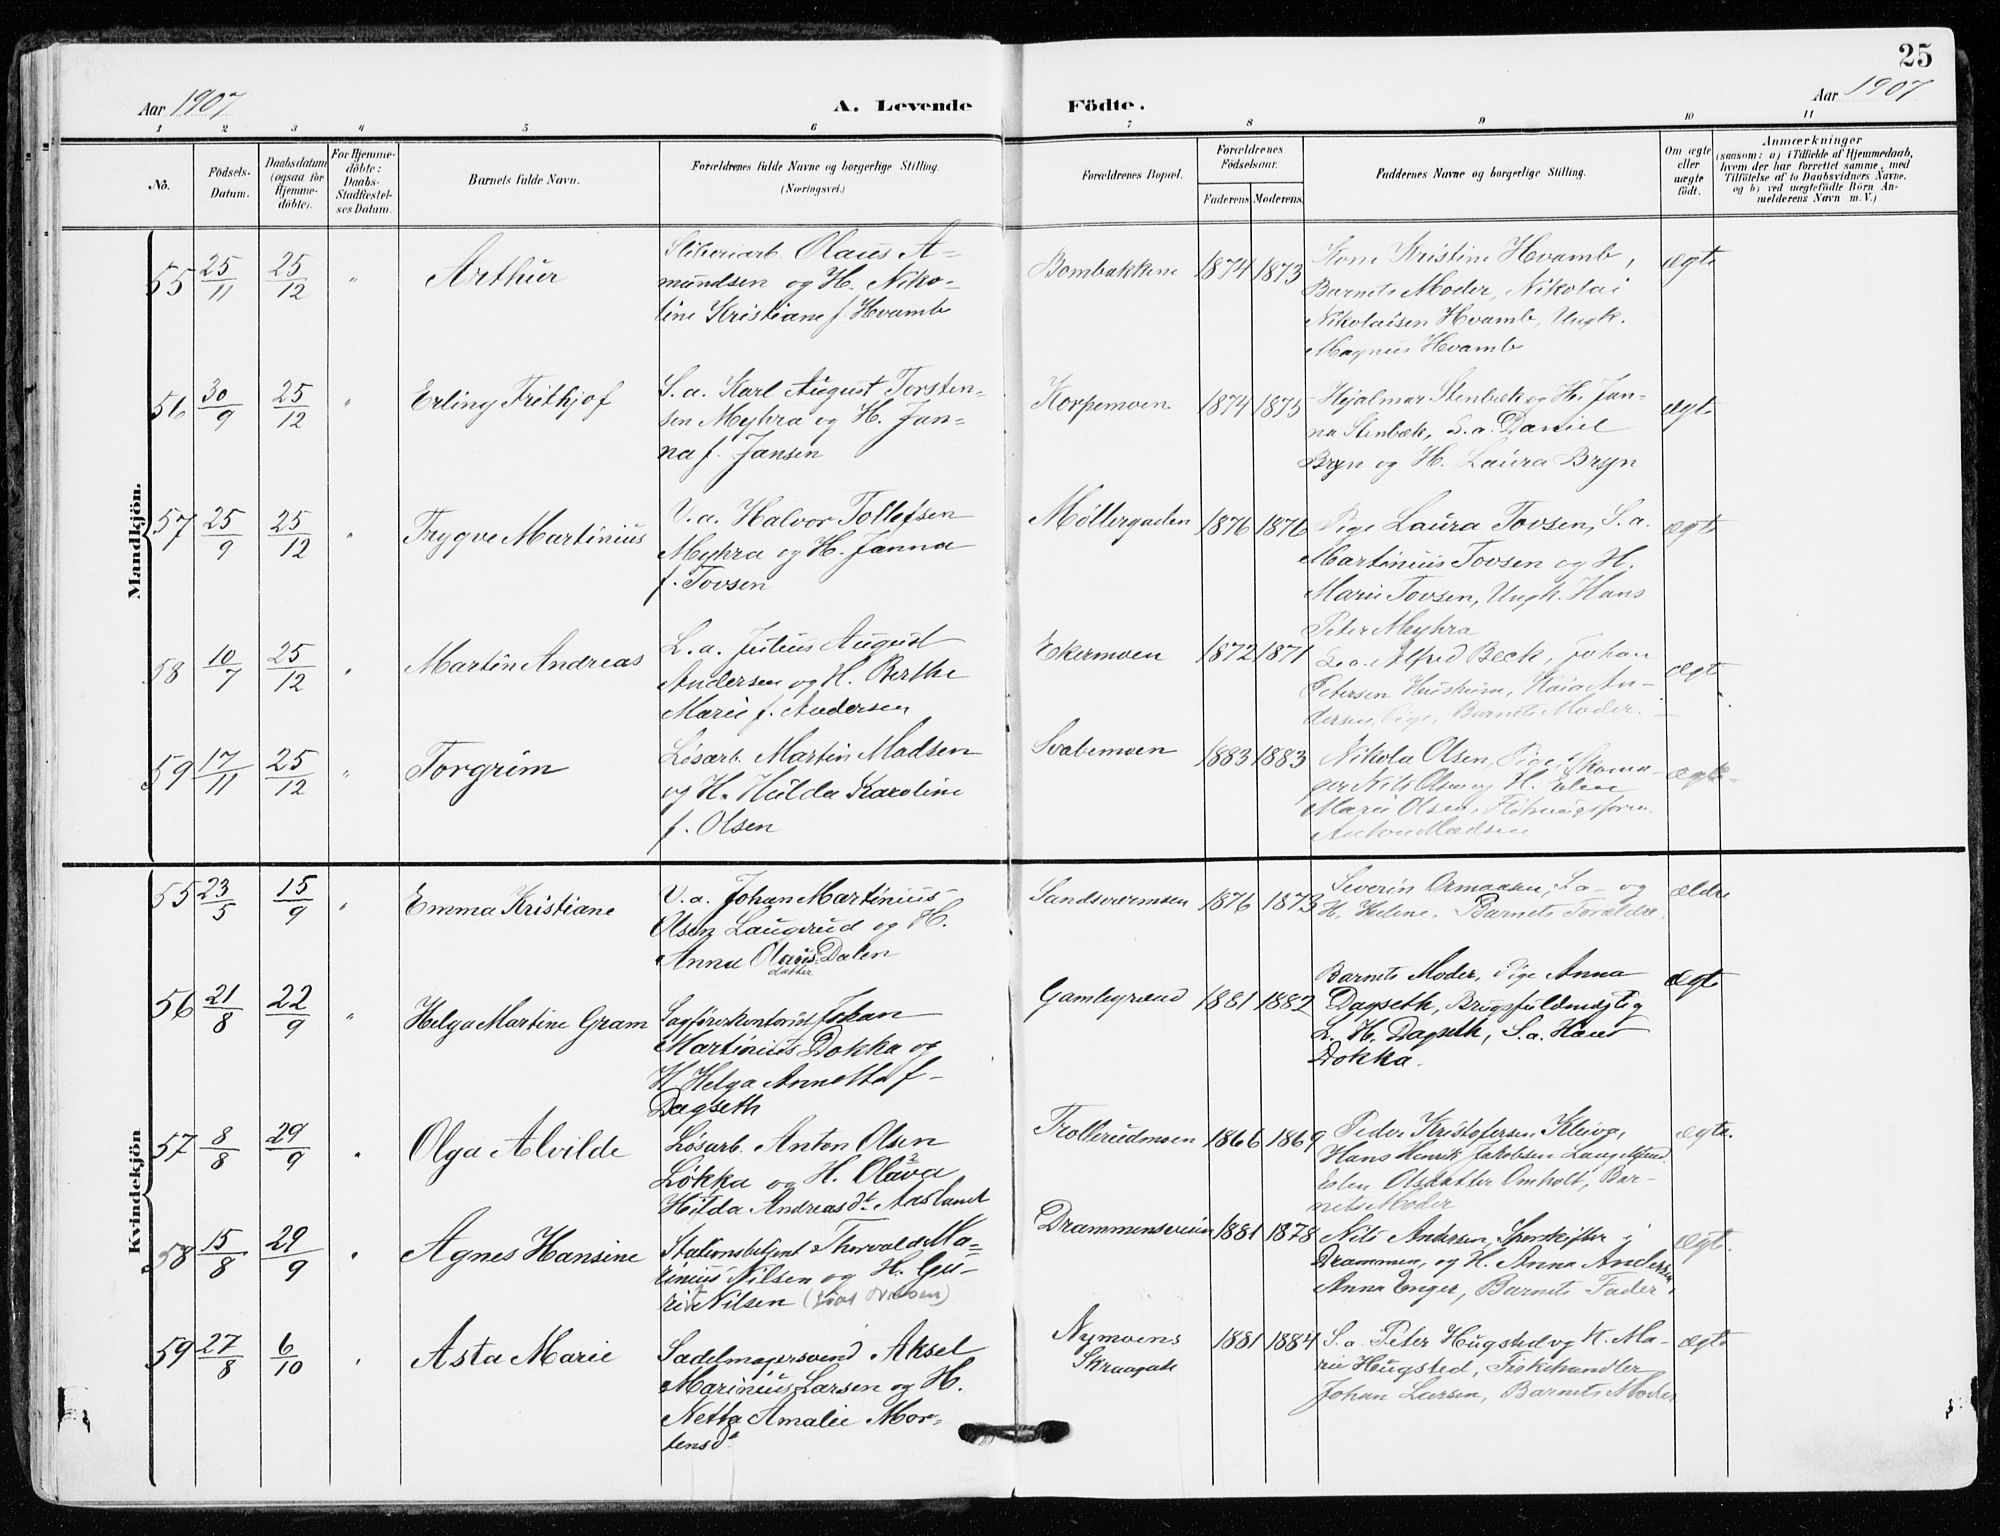 25
Aar 1907
A. Levende Födte.
Aar 1907
1 2 3 4 5 6 7 8 9 10 11
No.
Födsels-
Datum.
Daabsdatum
(ogsaa for
Hjemme-
döbte).
For Hjemme-
döbte:
Daabs-
Stadfæstel-
ses Datum.
Barnets fulde Navn.
Forældrenes fulde Navne og borgerlige Stilling.
(Næringsvei.)
Forældrenes Bopæl.
Forældrenes
Födselsaar.
Faderens Moderens.
Faddernes Navne og borgerlige Stilling.
Om ægte
eller
uægte
födt.
Anmærkninger
(saasom: a) i Tilfælde af Hjemmedaab,
hvem der har forrettet samme, med
Tilföielse af to Daabsvidners Navne,
og b) ved uægtefödte Börn An-
melderens Navn m. V.)
Mandkjön.
55 25/11 25/12 " Arthur
Sliberiarb. Olaus A-
mundsen og H. Niko-
line Kristiane f. Hvamb
Bombakkene 1874 1873
Kone Kristine Hvamb,
Barnets Moder, Nikolai
Nikolaisen Hvamb, Ungk.
Magnus Hvamb
ægte
56 30/9 25/12 " Erling Frithjof
S. a. Karl August Torsten-
sen Myhra og H. Jan-
na f. Jansen
Korpemoen 1874 1875
Hjalmar Stenbæk og H. Jan-
na Stenbæk, L. a. Daniel
Bryn og H. Laura Bryn
ægte
57 25/9 25/12 " Trygve Martinius
V. a. Halvor Tollefsen
Myhra og H. Janna
f. Tovsen
Møllergaden 1876 1876
Pige Laura Tovsen, S. a.
Martinius Tovsen og H.
Marie Tovsen, Ungk. Hans
Peter Myhra
ægte
58 10/7 25/12 " Martin Andreas
L. a. Julius August
Andersen og H. Berthe
Marie f. Andersen
Ekermoen 1872 1871
L. a. Alfred Beck, Johan
Petersen, Kaia An-
dersen, Pige, Barnets Moder.
ægte
59 17/11 25/12 " Torgrim
Løsarb. Martin Madsen
og H. Hulda Karoline
f. Olsen
Svabemoen 1883 1883
Nikola Olsen, Pige, Skoma-
ger Nils Olsen og H. Elen
Marie Olsen,
Anton Madsen
ægte
Kvindekjön
55 23/5 15/9 " Emma Kristiane
V. a. Johan Martinius
Olsen Laugerud og H.
Anna Olausdatter Dalen
Sandsværmoen 1876 1873
Severin Ormaasen, S. a. og
H. Helene, Barnets Forældre.
ældre
56 21/8 22/9 " Helga Martine Gram
Sagførerkontorist Johan
Martinius Dokka og
H. Helga Annette f.
Dagseth
Gamlegrænd 1881 1882
Barnets Moder, Pige Anna
Dagseth, Brugsfuldmægtig
L. H. Dagseth, S. a. Hans
Dokka.
ægte
57 8/8 29/9 " Olga Alvilde
Løsarb. Anton Olsen
Løkka og H. Olava
Hilda Andreasdt. Aasland
Trollerudmoen 1866 1869
Peder Kristofersen Kleiva,
Hans Henrik Jakobsen
Elen Olsdatter Omholt, Bar-
nets Moder
ægte.
58 15/8 29/9 " Agnes Hansine
Stationsbetjent Thorvald Ma-
rinius Nilsen og H. Gu-
ri Nilsen
Drammensveien 1881 1878
Nils Andersen, Sporskifter i
Drammen, og H. Anna Andersen,
Anna Enger, Barnets Fader.
ægte.
59 27/8 6/10 " Asta Marie
Sadelmagersvend Aksel
Marinius Larsen og H.
Netta Amalie Mor-
tensd.
Nymoens
Skraagate 1881 1884
S. a. Peter Hugsted og H. Ma-
rie Hugsted, Fiskehandler
Johan Larsen, Barnets Moder
ægte